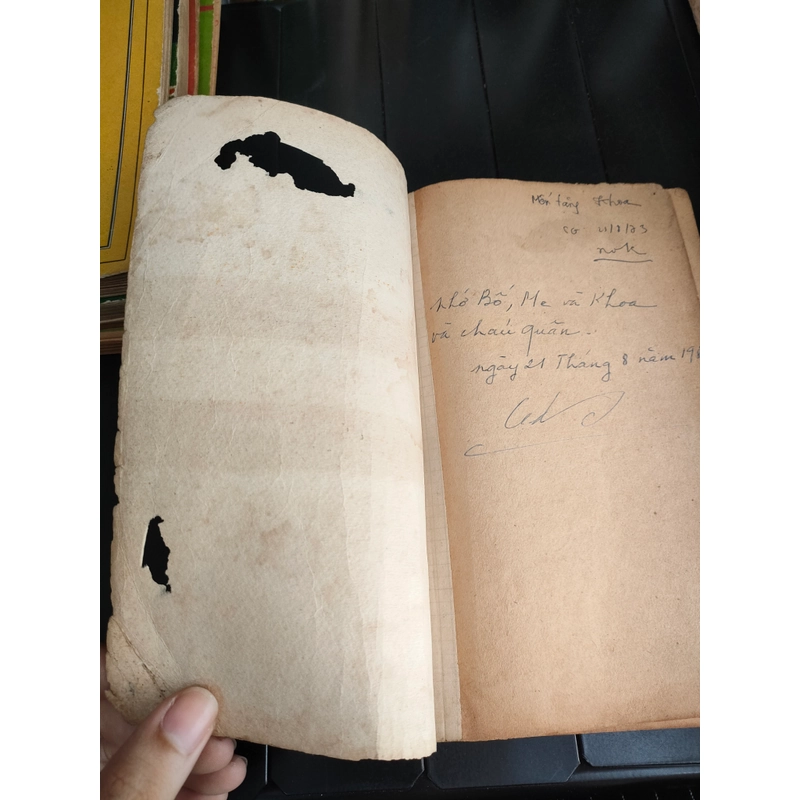 Mến tặng Khoa
SG 21/8/73
nok
nhớ Bố, Mẹ và Khoa
và cháu quân..
ngày 21 Tháng 8 năm 19